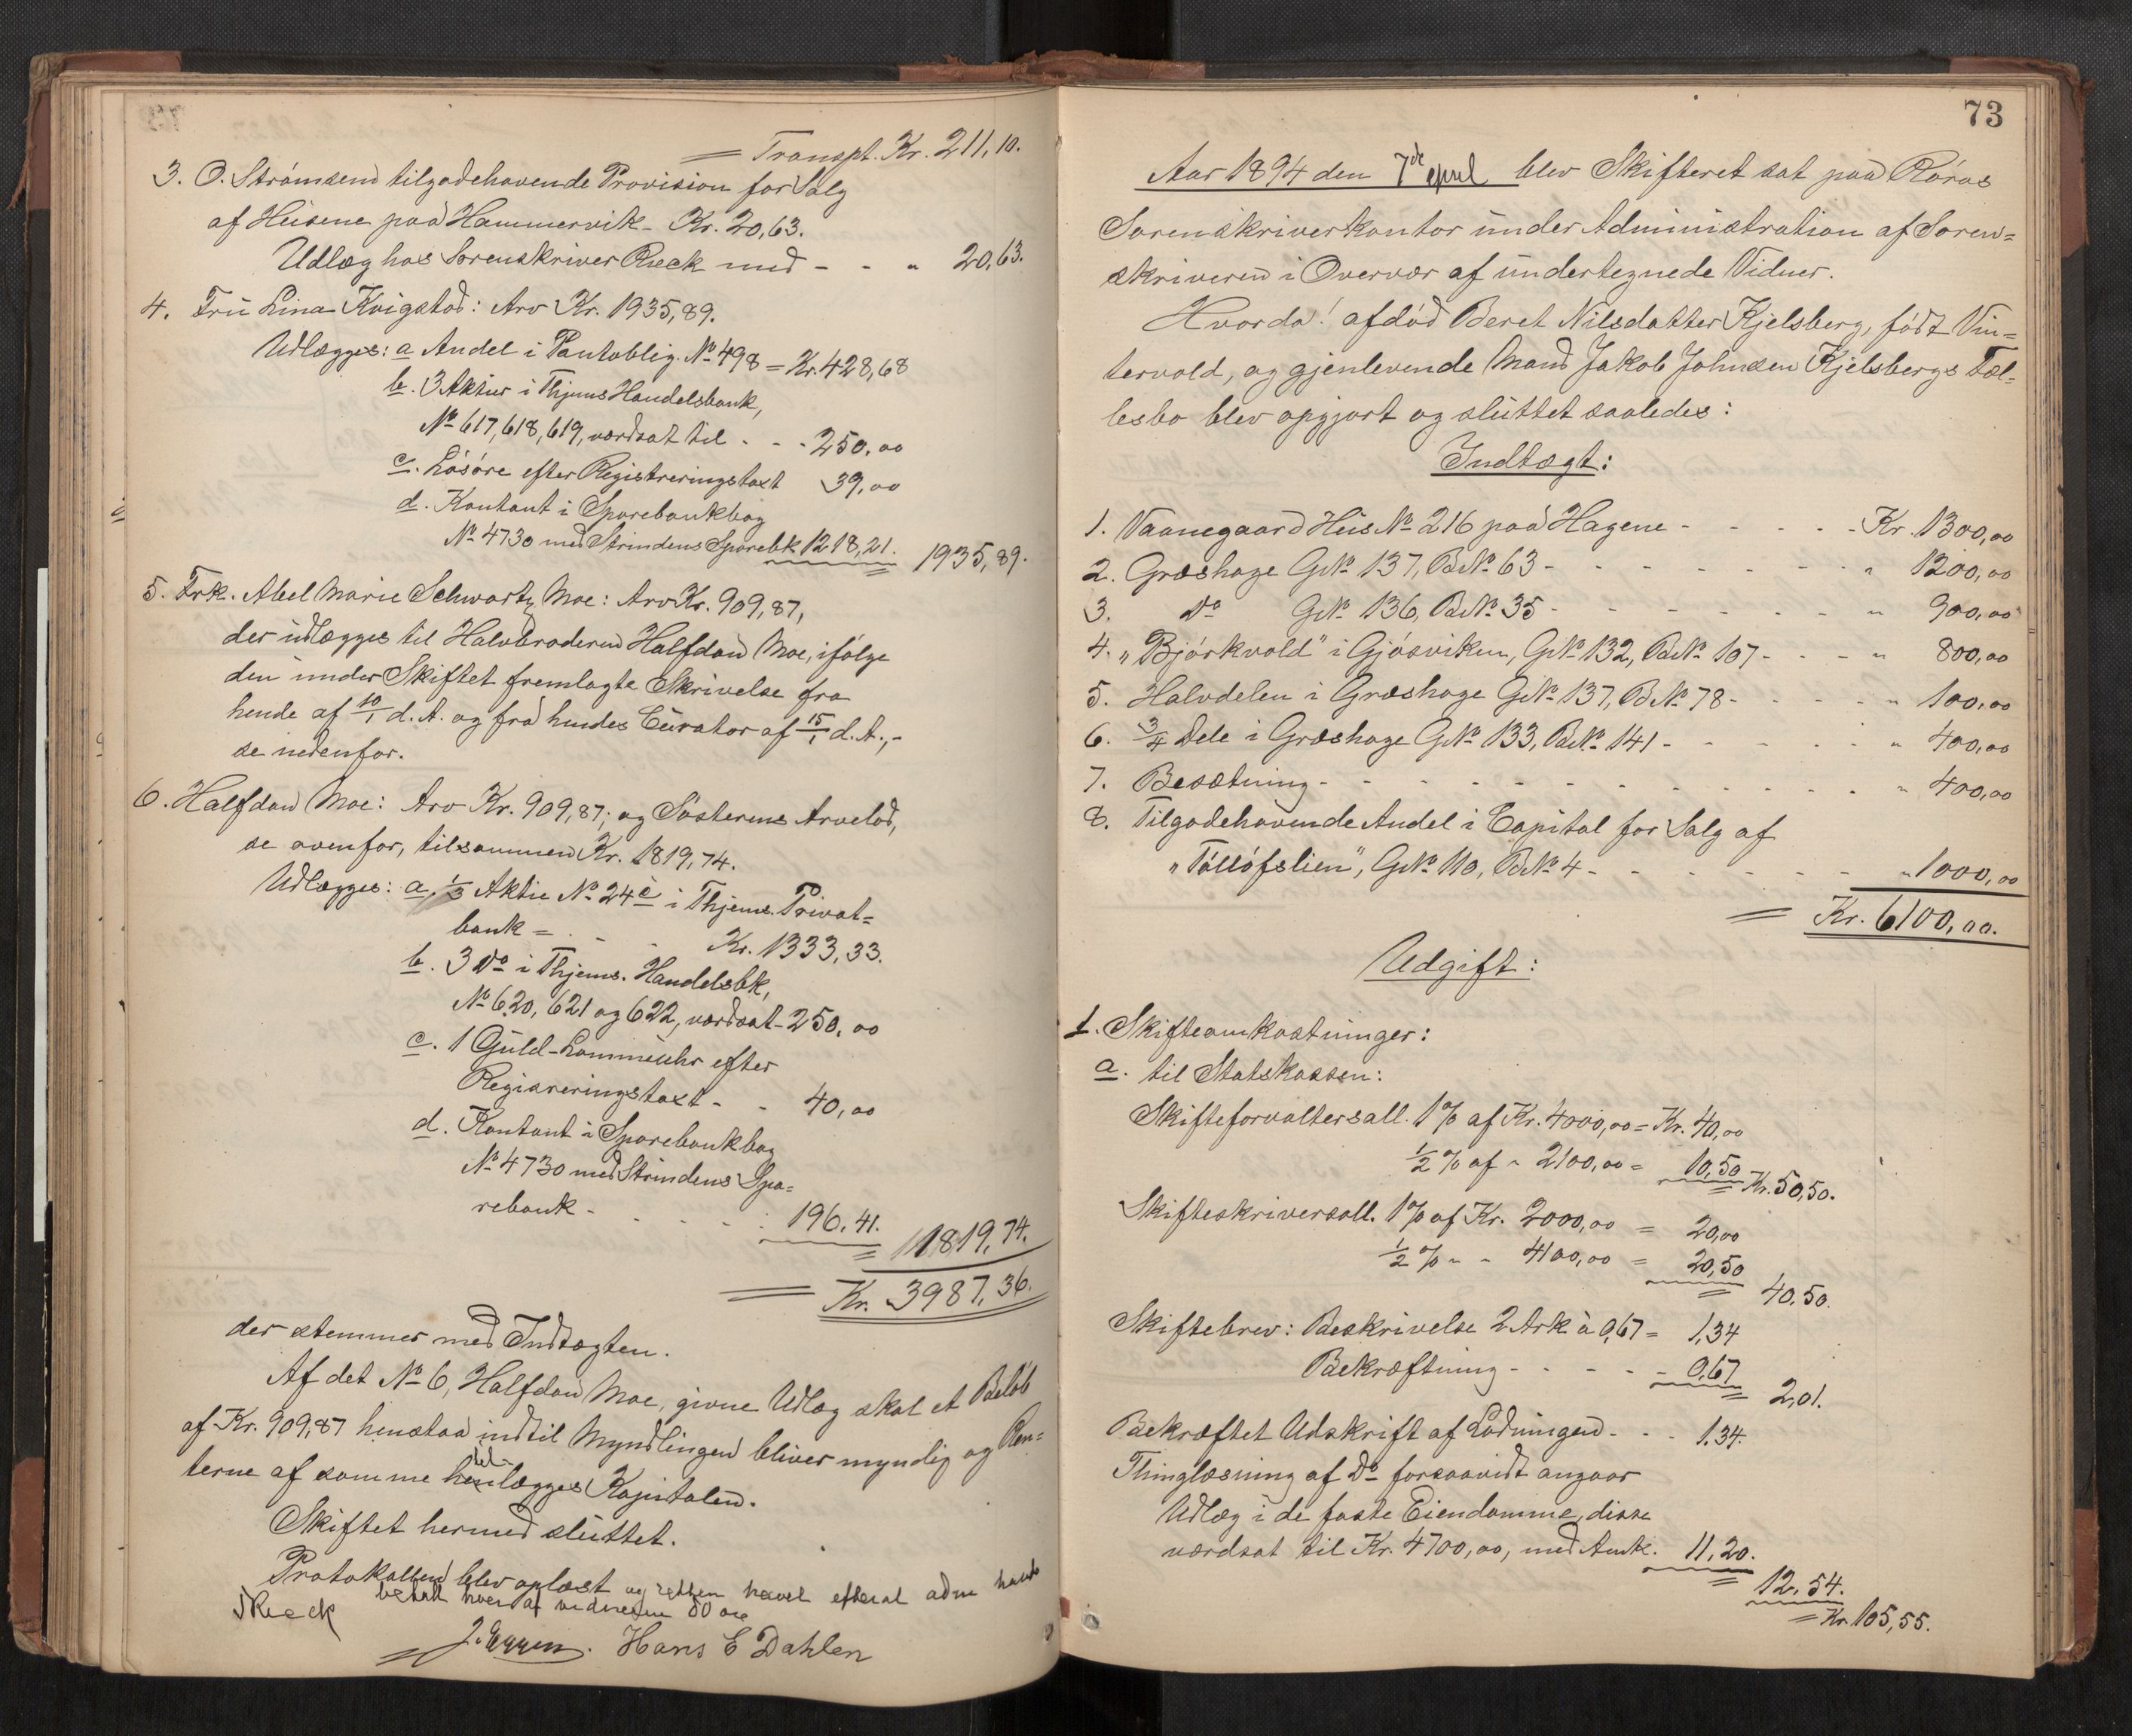 = Transpt. Kr. 211,10.
3. O. Strømsem tilgodehavende Provision for Salg
af Husene paa Hammervik - Kr. 20,63.
Udlæg hos Sorenskriver Rieck med - - " 20,63.
4. Fru Lina Kvigstad: Arv Kr. 1935,89.
Udlægges: a Andel i Pantoblig. No 498 = Kr. 428,68
b. 3 Aktier i Thjems Handelsbank,
No 617, 618, 619, værdsat til - - - 250,00
c. Løsøre efter Registreringstaxt 39,00
d. Kontant i Sparebankbog
No 4730 med Strindens Sparebk 1218,21. 1935,89.
5. Frk. Abel Marie Schwartz Moe: Arv Kr. 909,87,
der udlægges til Halvbroderen Halfdan Moe, ifølge
den under Skiftet fremlagte Skrivelse fra
hende af 10/1 d.A. og fra hendes Curator af 15/1 d.A.,-
se nedenfor.
6. Halfdan Moe: Arv Kr. 909,87; og Søsterens Arvelod,
se ovenfor, tilsammen Kr. 1819,74.
Udlægges: a, 1/3 Aktie No 24 c i Thjems. Privat=
bank = - - Kr. 1333,33.
b. 3 Do i Thjems. Handelsbk,
No 620, 621 og 622, værdsat - 250,00
c. 1 Guld-Lommeuhr efter
Regisreringstaxt - - 40,00
d. Kontant i Sparebankbog
No 4730 med Strindens Spa=
rebank - - - - - 196,41. 1819,74.
= Kr. 3987,36.
der stemmer med Indtægten.
Af det No 6, Halfdan Moe, givne Udlæg skal et Beløb
af Kr. 909,87 henstaa indtil Myndlingen bliver myndig og Ren=
terne af samme tillægges Kapitalen.
Skiftet hermed sluttet.
Protokollen blev oplæst og retten hævet efterat adm havde
betalt hver af vidnerne 80 øre
Rieck
J. Eggen. Hans E Dahlen
73
Aar 1894 den 7de april blev Skifteret sat paa Røros
Sorenskriverkontor under Administration af Soren=
skriveren i Overvær af undertegnede Vidner.
Hvorda! afdød Beret Nilsdatter Kjelsberg, født Vin=
tervold, og gjenlevende Mand Jakob Johnsen Kjelsbergs Fæl=
lesbo blev opgjort og sluttet saaledes:
Indtægt:
1. Vaanegaard Hus No 216 paa Hagene - - - - - Kr. 1300,00
2. Græshage GNo 137, BNo 63 - - - - - - - " 1200,00
3. Do GNo 136, BNo 35 - - - - - - - " 900,00
4. "Bjørkvold" i Gjøsviken, GNo 132, BNo 107 - - - - " 800,00
5. Halvdelen i Græshage GNo 137, BNo 78 - - - - - " 100,00
6. 3/4 Dele i Græshage GNo 133, BNo 141 - - - - - " 400,00
7. Besætning - - - - - - - - - - - " 400,00
8. Tilgodehavende Andel i Capital for Salg af
"Tølløfslien", GNo 110, BNo 4 - - - - - - - " 1000,00
= Kr. 6100,00.
Udgift:
1. Skifteomkostninger:
a. til Statskassen:
Skifteforvaltersall. 1% af Kr. 4000,00 = Kr. 40,00
1/2 % af " 2100,00 = 10,50 Kr. 50,50.
Skifteskriversall. 1% af Kr. 2000,00 = 20,00
1/2 % " " 4100,00 = 20,50
40,50.
Skiftebrev: Beskrivelse 2 Ark à 0,67 = 1,34
Bekræftning - - - - - 0,67
2,01.
Bekræftet Udskrift af Lodningen - - - 1.34.
Thinglæsning af Do forsaavidt angaar
Udlæg i de faste Eiendomme, disse
værdsat til Kr. 4700,00, med Anmk. 11,20.
12,54.
= Kr. 105,55.